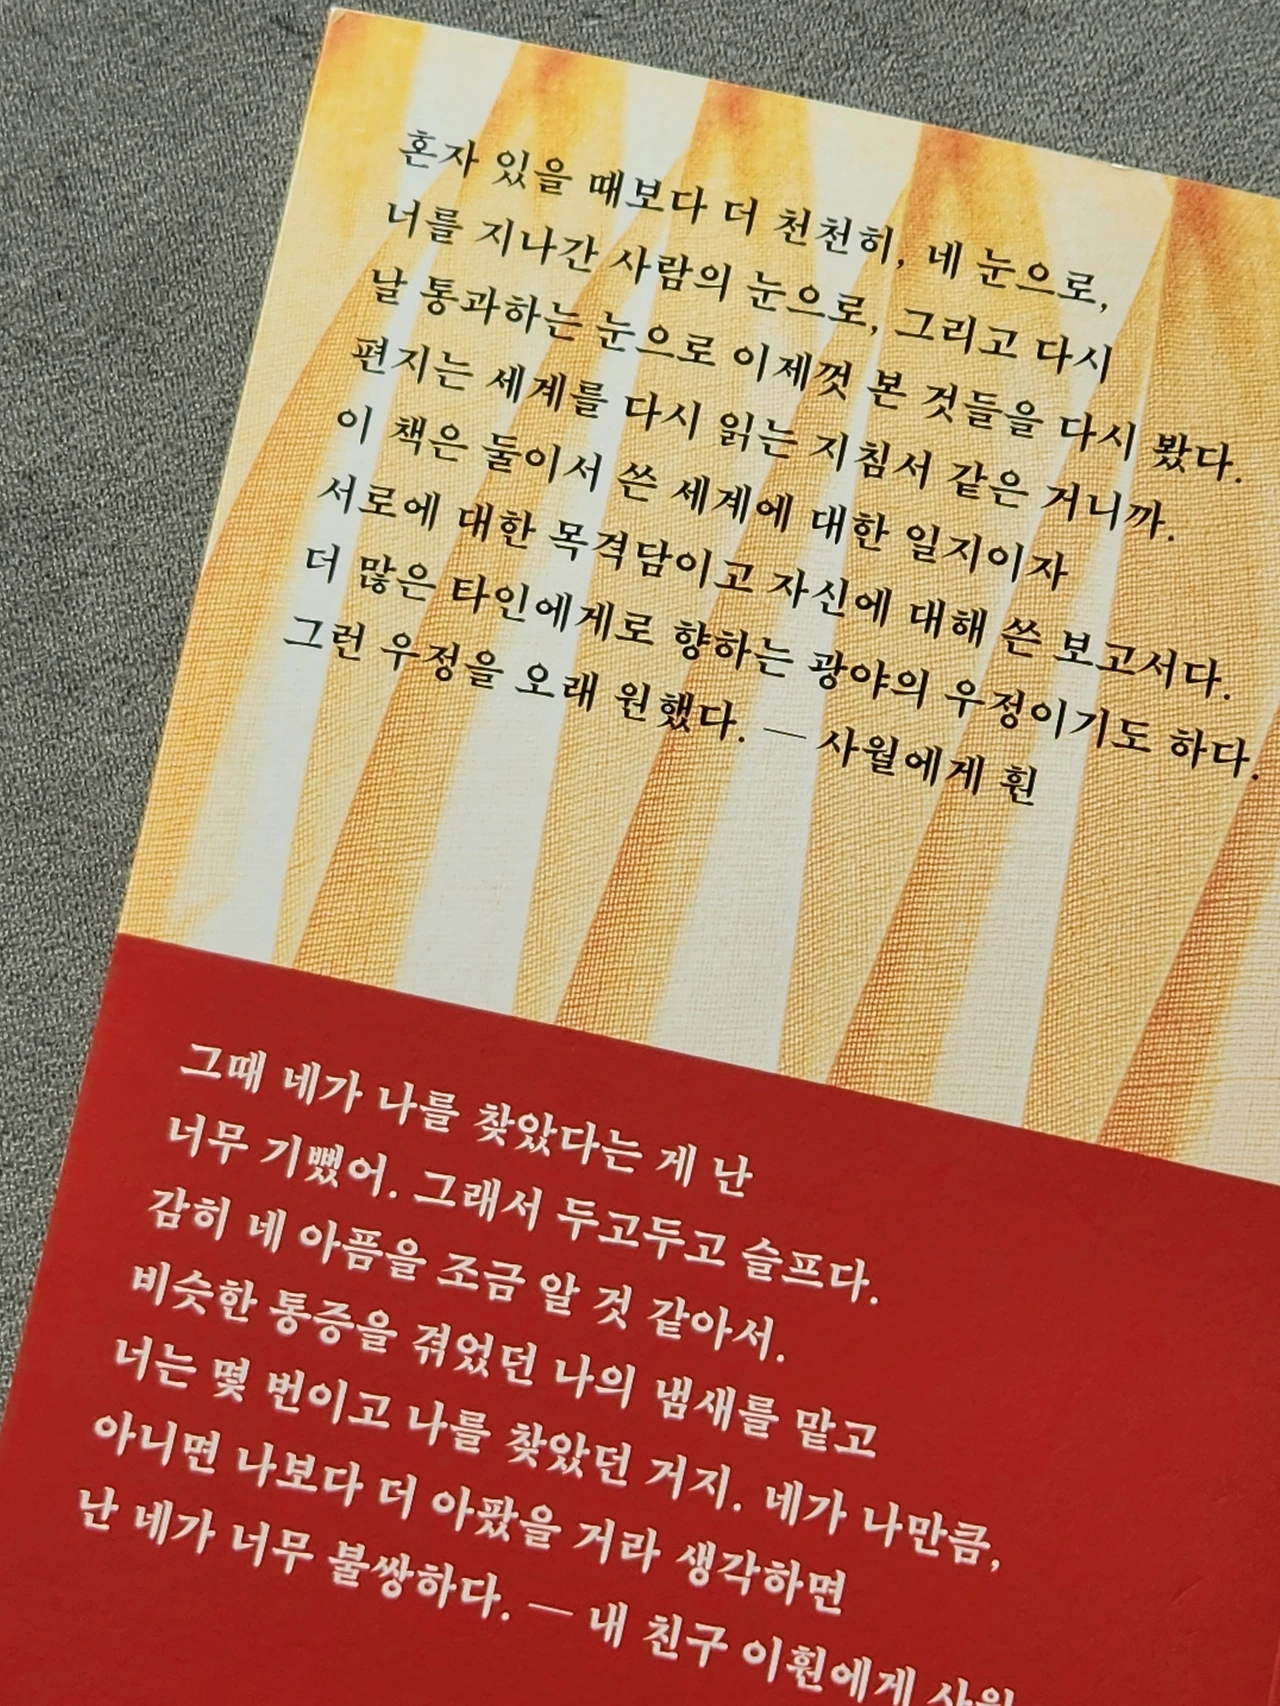 혼자 있을 때보다 더 천천히, 네 눈으로,
너를 지나간 사람의 눈으로, 그리고 다시
날 통과하는 눈으로 이제껏 본 것들을 다시 봤다.
편지는 세계를 다시 읽는 지침서 같은 거니까.
이 책은 둘이서 쓴 세계에 대한 일지이자
서로에 대한 목격담이고 자신에 대해 쓴 보고서다.
더 많은 타인에게로 향하는 광야의 우정이기도 하다.
그런 우정을 오래 원했다. — 사월에게 훤
그때 네가 나를 찾았다는 게 난
너무 기뻤어. 그래서 두고두고 슬프다.
감히 네 아픔을 조금 알 것 같아서.
비슷한 통증을 겪었던 나의 냄새를 맡고
너는 몇 번이고 나를 찾았던 거지. 네가 나만큼,
아니면 나보다 더 아팠을 거라 생각하면
난 네가 너무 불쌍하다. — 내 친구 이훤에게 사월